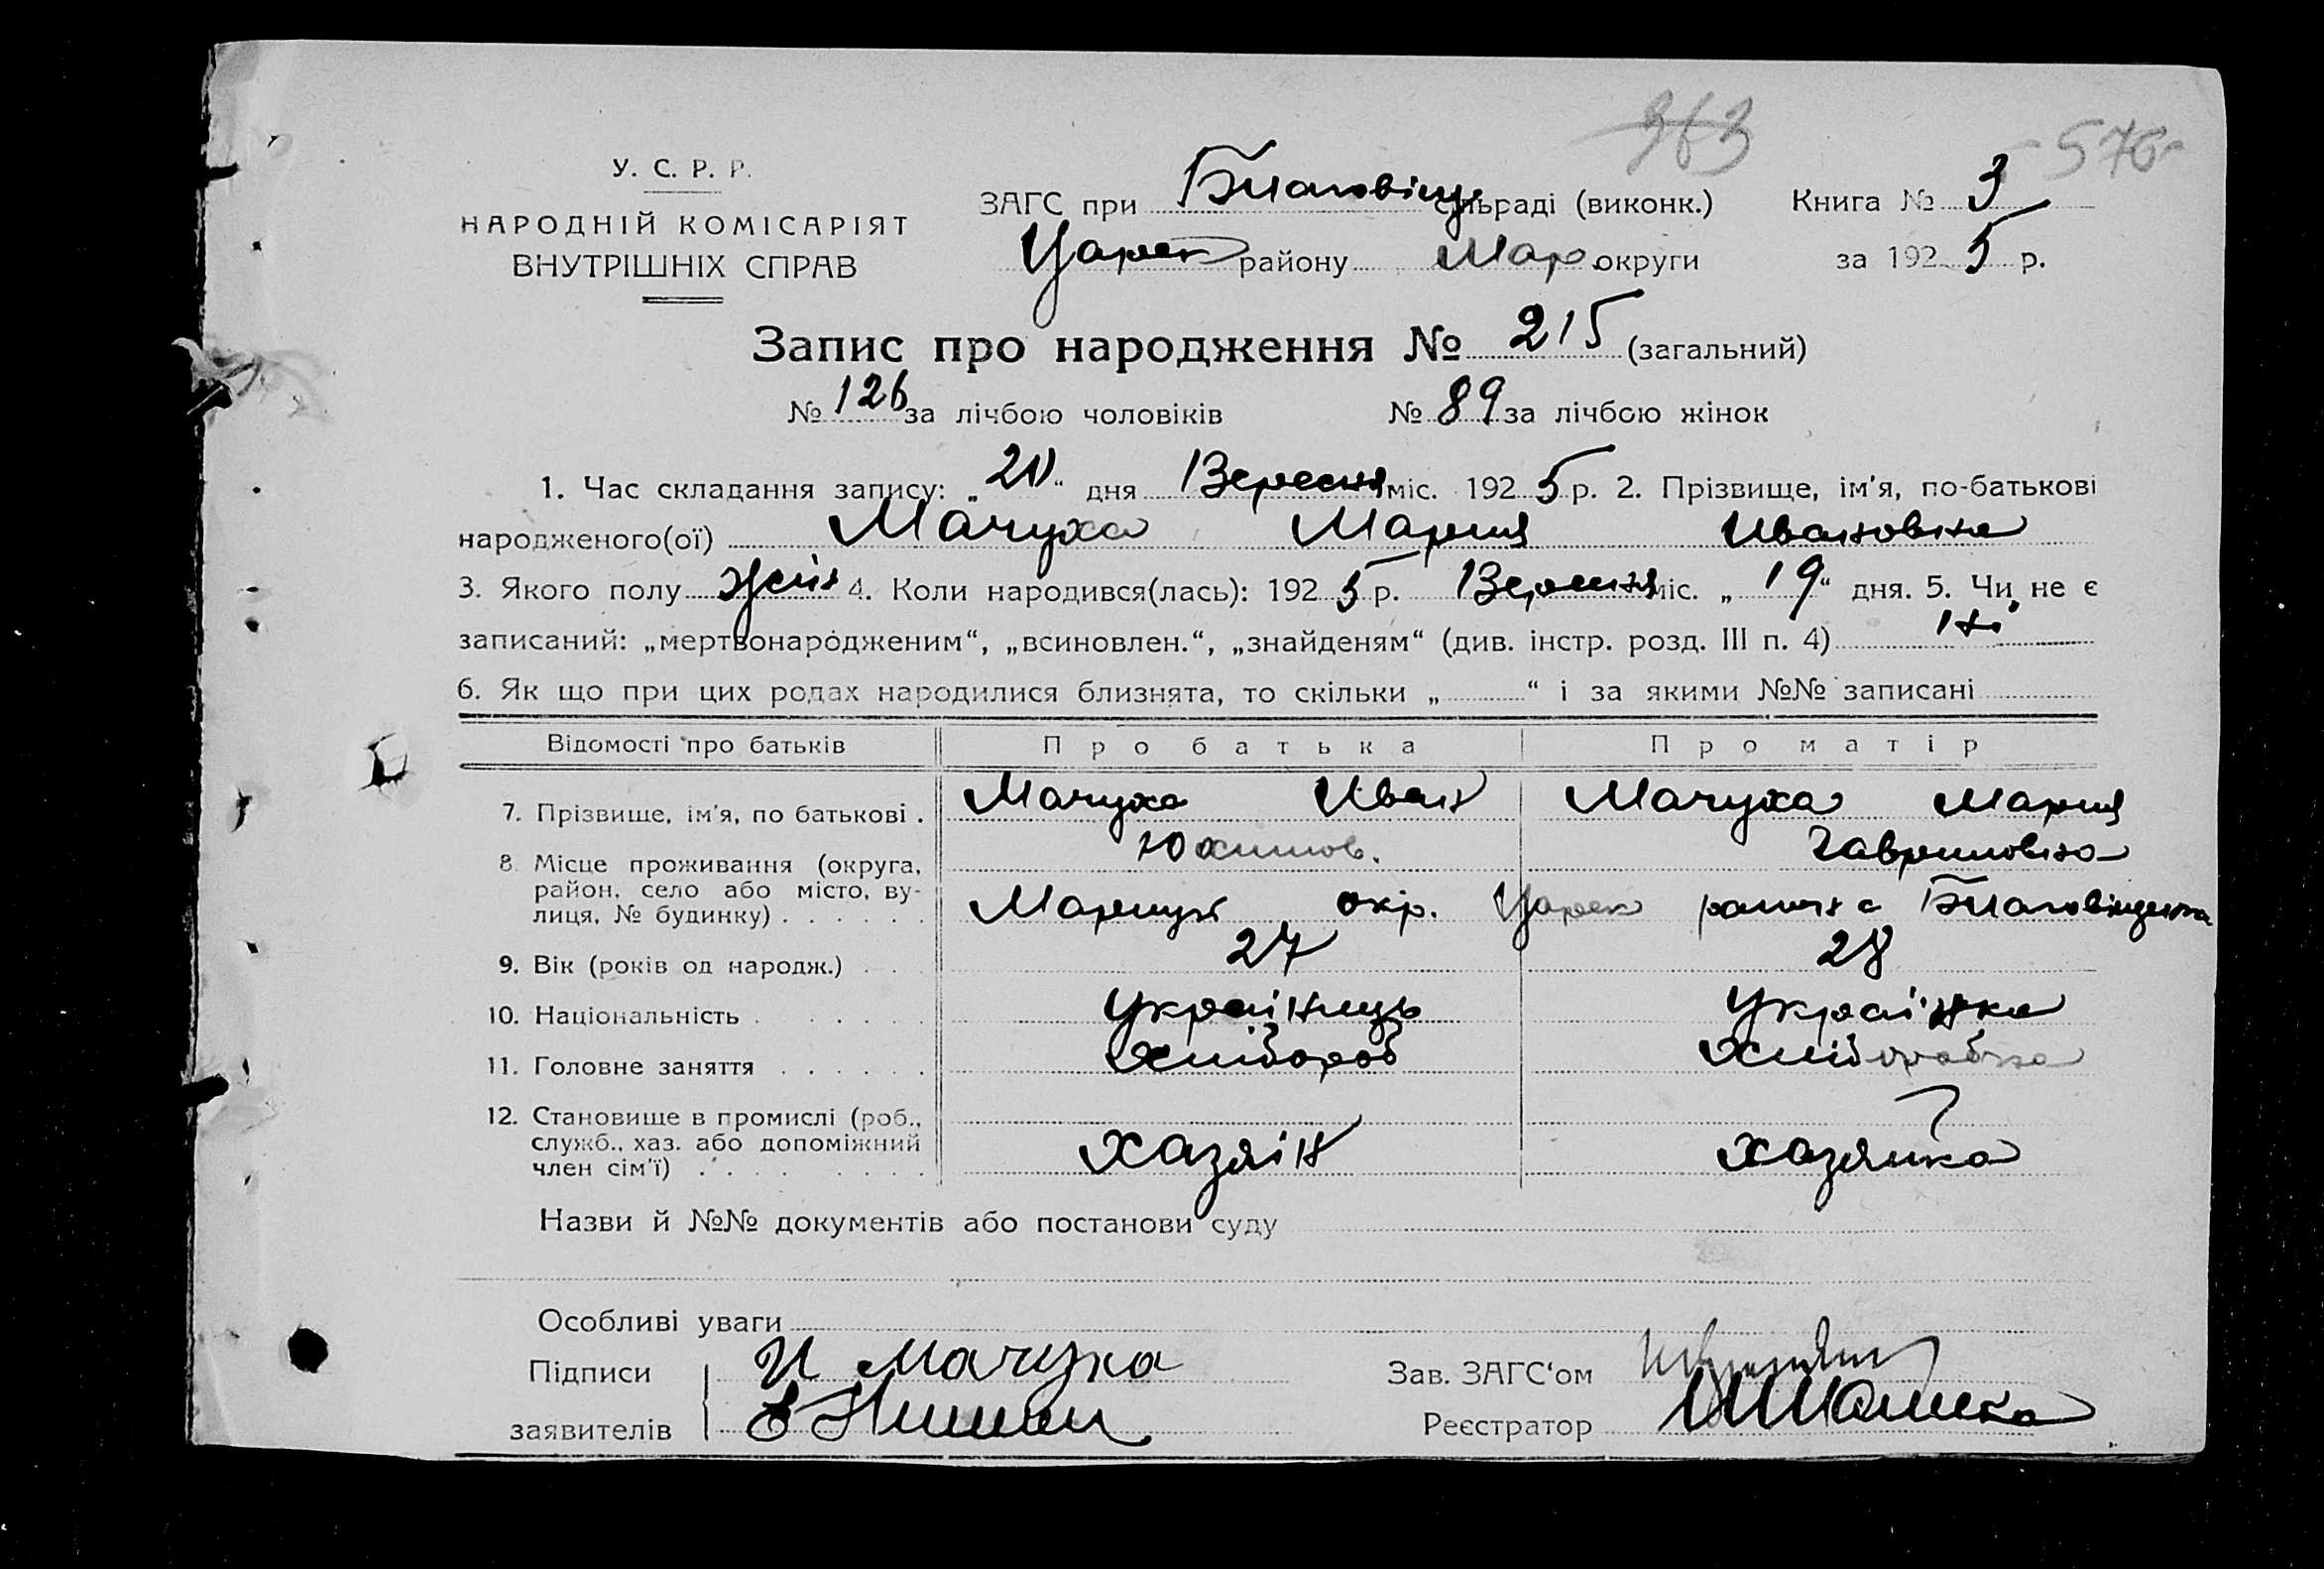 363 576
У. С. Р. Р.
НАРОДНІЙ КОМІСАРІЯТ
ВНУТРІШНІХ СПРАВ
ЗАГС при Благовіщ сільраді (виконк.) Книга № 3
Царек району Мар округи за 1925 р.
Запис про народження № 215 (загальний)
№ 126 за лічбою чоловіків № 89 за лічбою жінок
1. Час складання запису: „20“ дня Вересня міс. 1925 р. 2. Прізвище, ім'я, по-батькові
народженого(ої) Мачуха Мария Ивановна
3. Якого полу жін 4. Коли народився(лась): 1925 р. Вересня міс. „19“ дня. 5. Чи не є
записаний: „мертвонародженим“, „всиновлен.“, „знайденям“ (див. інстр. розд. III п. 4) ні
6. Як що при цих родах народилися близнята, то скільки „ “ і за якими №№ записані
Відомості про батьків Про батька Про матір
7. Прізвище, ім'я, по батькові . Мачуха Иван Юхимов. Мачуха Мария Гавриловна
8. Місце проживання (округа,
район, село або місто, ву-
лиця, № будинку) . . . . . . Мариуп окр. Царек район с Благовіщенка
9. Вік (років од народж.) . . . 27 28
10. Національність . . . . . . Українець Українка
11. Головне заняття . . . . . . Хлібороб Хліборобка
12. Становище в промислі (роб.,
служб., хаз. або допоміжний
член сім'ї) . . . . . . Хазяїн Хазяйка
Назви й №№ документів або постанови суду
Особливі уваги
Підписи И Мачуха Зав. ЗАГС‘ом
заявителів Реєстратор